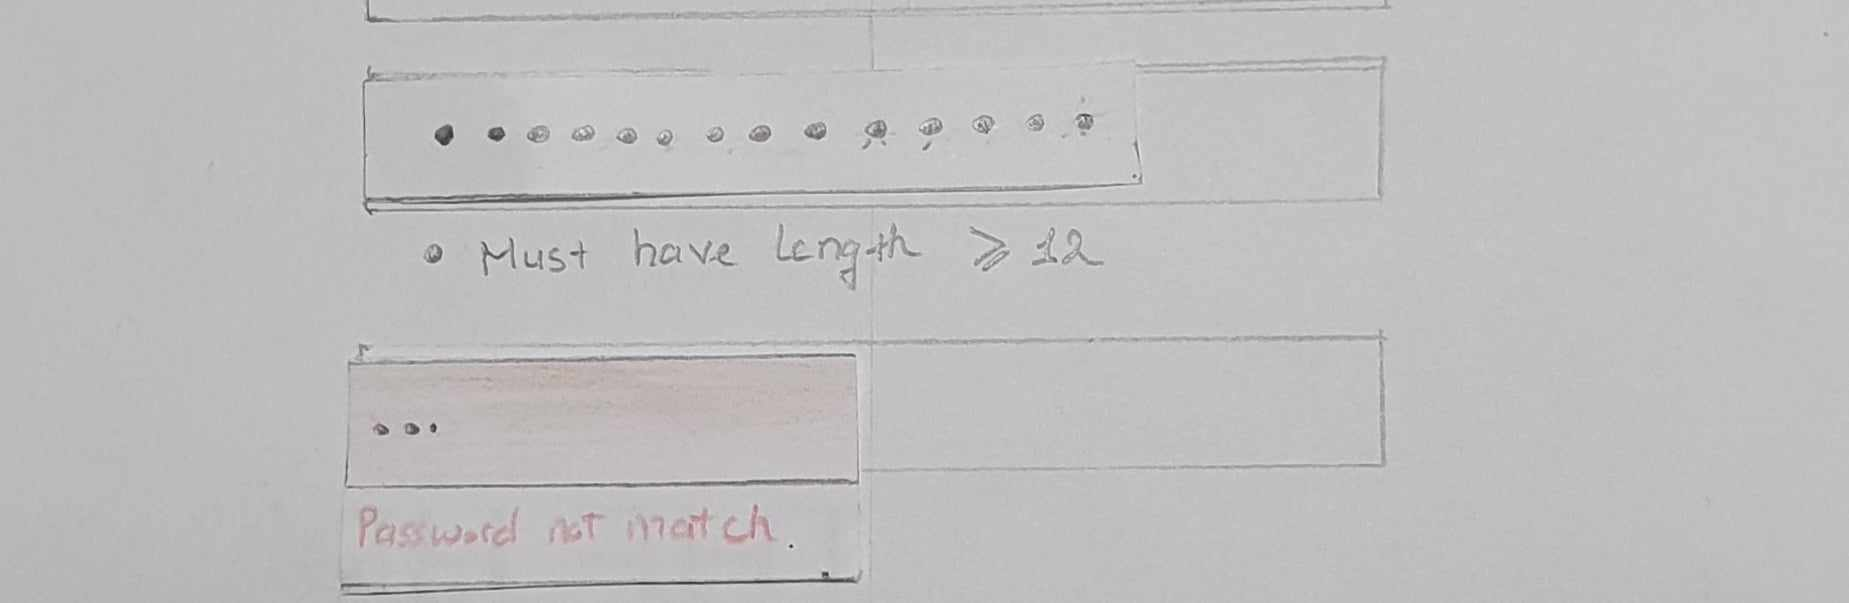 • Must have length ≥ 12
Password not match.